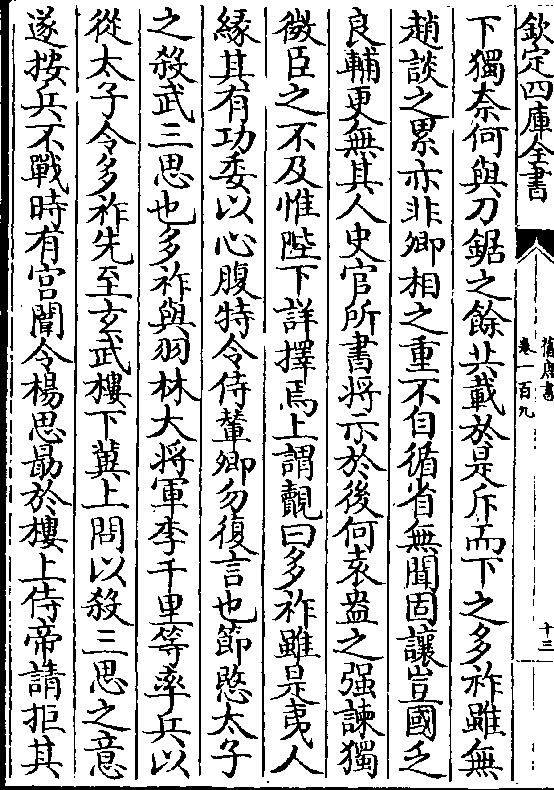 欽定四庫全書
舊唐書
卷一百九
十三
下獨奈何與刀鋸之餘共載於是斥而下之多祚雖無
趙談之累亦非卿相之重不自循省無聞固讓豈國乏
良輔更無其人史官所書將示於後何袁盎之强諫獨
微臣之不及惟陛下詳擇焉上謂覿曰多祚雖是夷人
緣其有功委以心腹特令侍輦卿勿復言也節愍太子
之殺武三思也多祚與羽林大將軍李千里等率兵以
從太子令多祚先至玄武樓下冀上問以殺三思之意
遂按兵不戰時有宫闈令楊思勗於樓上侍帝請拒其